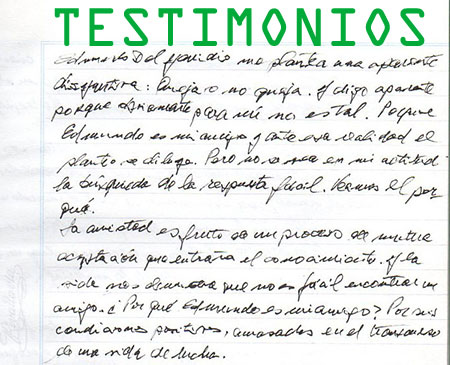 TESTIMONIOS
Edmundo Del me plantea una aparente
disyuntiva: Queja o no queja. Y digo aparente
porque obviamente para mí no es tal. Porque
Edmundo es mi amigo y ante esa realidad el
planteo se diluye. Pero no se vea en mi actitud
la búsqueda de la respuesta fácil. Veamos el por
qué.
La amistad es fruto de un proceso de mutua
aceptación que entraña el conocimiento. Y la
vida nos demuestra que no es fácil encontrar un
amigo. ¿Por qué Edmundo es mi amigo? Por sus
condiciones positivas, amasadas en el transcurso
de una vida de lucha.